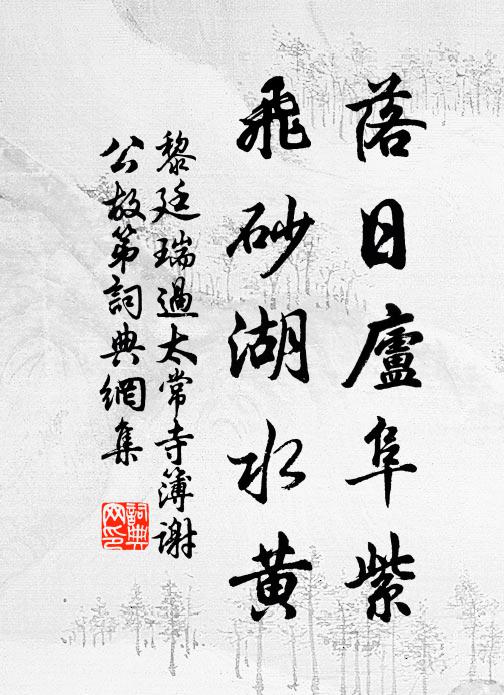 落日廬阜紫
飛砂湖水黃
黎廷瑞過太常寺簿謝
公故第詞典網集
詞典網印